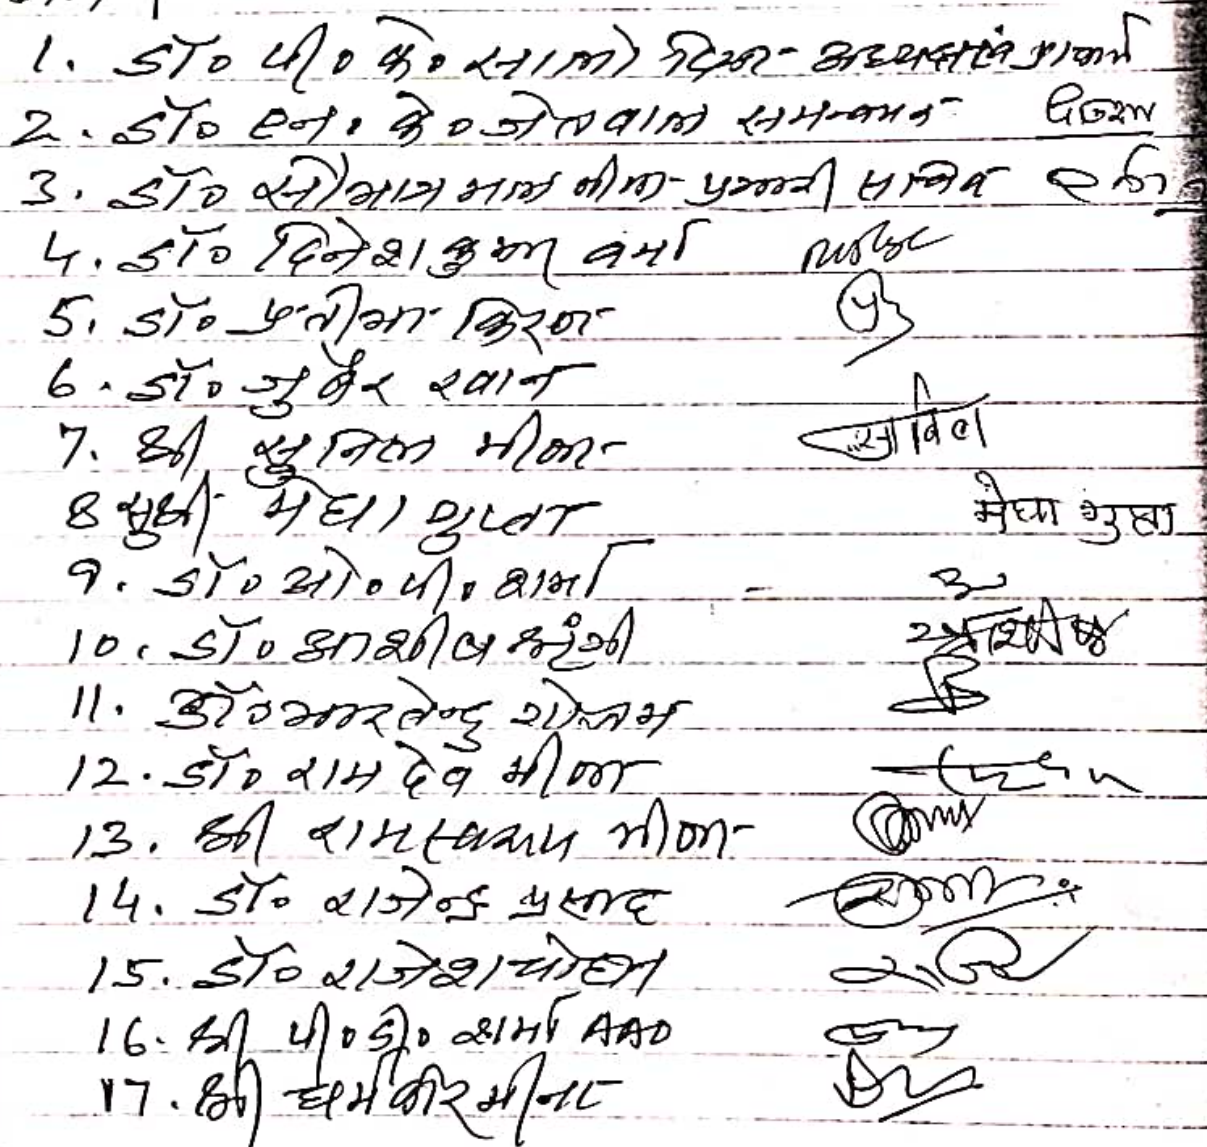 1. डॉ० पी० के० सालोदिया - अध्यक्ष एवं प्राचार्य
2. डॉ० एन० के० जेतवाल समन्वयक
3. डॉ० सौभाग मल मीना - प्रभारी सचिव
4. डॉ० दिनेश कुमार वर्मा
5. डॉ० प्रतीमा किरण
6. डॉ० जुबैर खान
7. श्री सुनिल मीना
8 सुश्री मेघा गुप्ता मेघा गुप्ता
9. डॉ० ओ० पी० शर्मा
10. डॉ० आशीष श्रृंगी
11. डॉ० भारतेन्दु गौतम
12. डॉ० रामदेव मीणा
13. श्री रामस्वरूप मीणा
14. डॉ० राजेन्द्र प्रसाद
15. डॉ० राजेश चौहान
16. श्री पी० डी० शर्मा AAO
17. श्री धर्मवीर मीना